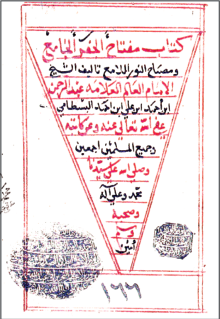 كتاب مفتاح الجفر الجامع
ومصباح النور اللامع تاليف الشيخ
الامام العالم العلامه عبد الرحمن
ابن احمد ابن علي ابن احمد البسطامي
رضي الله تعالى عنه وعنا به
وجميع المسلمين اجمعين
وصلى الله على سيدنا
محمد وعلى آله
وصحبه
وسلم
آمين
١٦٦